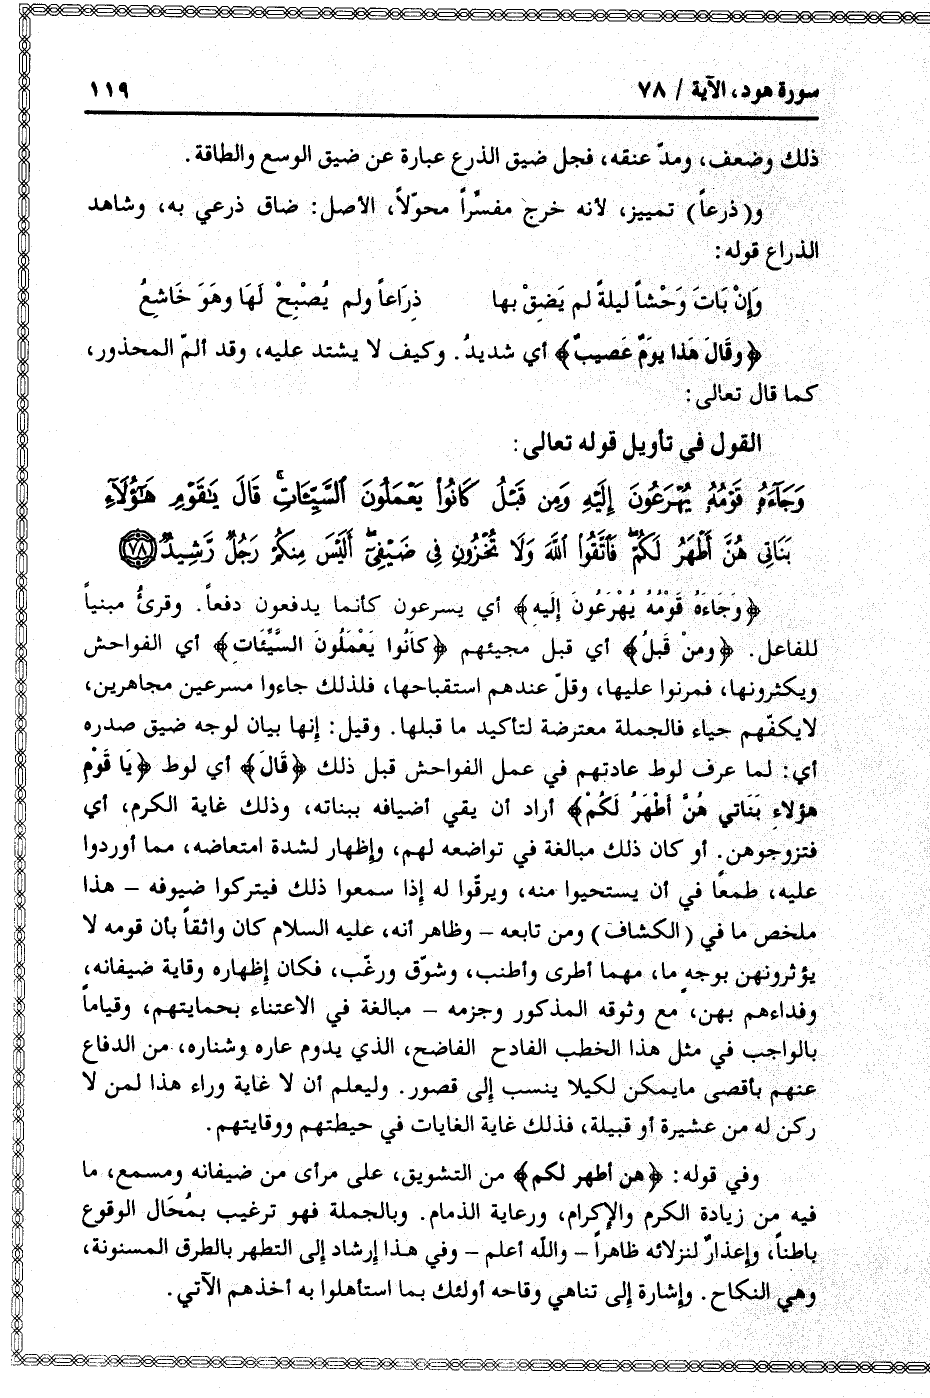 سورة هود، الآية / ٧٨ ١١٩
ذلك وضعف، ومدّ عنقه، فجل ضيق الذرع عبارة عن ضيق الوسع والطاقة.
و(ذرعاً) تمييز، لأنه خرج مفسِّراً محوّلاً، الأصل: ضاق ذرعي به، وشاهد
الذراع قوله:
وَإِنْ بَاتَ وَحْشاً ليلةً لم يَضِقْ بها ذِرَاعاً ولم يُصْبِحْ لَهَا وهَوَ خَاشعُ
﴿وقَالَ هَذا يومٌ عَصيبٌ﴾ أي شديدُ. وكيف لا يشتد عليه، وقد ألمّ المحذور،
كما قال تعالى:
القول في تأويل قوله تعالى:
وَجَآءَهُۥ قَوْمُهُۥ يُهْرَعُونَ إِلَيْهِ وَمِن قَبْلُ كَانُوا۟ يَعْمَلُونَ ٱلسَّيِّـَٔاتِۚ قَالَ يَـٰقَوْمِ هَـٰٓؤُلَآءِ
بَنَاتِى هُنَّ أَطْهَرُ لَكُمْۖ فَٱتَّقُوا۟ ٱللَّهَ وَلَا تُخْزُونِ فِى ضَيْفِىٓۖ أَلَيْسَ مِنكُمْ رَجُلٌ رَّشِيدٌ ﴿٧٨﴾
﴿وَجَاءَهُ قَوْمُهُ يُهْرَعُونَ إِلَيهِ﴾ أي يسرعون كأنما يدفعون دفعاً. وقرئُ مبنياً
للفاعل. ﴿ومنْ قَبلُ﴾ أي قبل مجيئهم ﴿كاَنُوا يَعْمَلُونَ السَّيِّئَاتِ﴾ أي الفواحش
ويكثرونها، فمرنوا عليها، وقلّ عندهم استقباحها، فلذلك جاءوا مسرعين مجاهرين،
لايكفّهم حياء فالجملة معترضة لتأكيد ما قبلها. وقيل: إنها بيان لوجه ضيق صدره
أي: لما عرف لوط عادتهم في عمل الفواحش قبل ذلك ﴿قَالَ﴾ أي لوط ﴿يَا قَوْمِ
هؤلاءِ بَنَاتي هُنَّ أَطْهَرُ لَكُمْ﴾ أراد أن يقي أضيافه ببناته، وذلك غاية الكرم، أي
فتزوجوهن. أو كان ذلك مبالغة في تواضعه لهم، وإظهار لشدة امتعاضه، مما أوردوا
عليه، طمعاً في أن يستحيوا منه، ويرقّوا له إذا سمعوا ذلك فيتركوا ضيوفه – هذا
ملخص ما في (الكشاف) ومن تابعه – وظاهر أنه، عليه السلام كان واثقاً بأن قومه لا
يؤثرونهن بوجه ما، مهما أطرى وأطنب، وشوّق ورغّب، فكان إظهاره وقاية ضيفانه،
وفداءهم بهن، مع وثوقه المذكور وجزمه – مبالغة في الاعتناء بحمايتهم، وقياماً
بالواجب في مثل هذا الخطب الفادح الفاضح، الذي يدوم عاره وشناره، من الدفاع
عنهم بأقصى مايمكن لكيلا ينسب إلى قصور. وليعلم أن لا غاية وراء هذا لمن لا
ركن له من عشيرة أو قبيلة، فذلك غاية الغايات في حيطتهم ووقايتهم.
وفي قوله: ﴿هن أطهر لكم﴾ من التشويق، على مرأى من ضيفانه ومسمع، ما
فيه من زيادة الكرم والإكرام، ورعاية الذمام. وبالجملة فهو ترغيب بمُحَال الوقوع
باطناً، وإعذارٌ لنزلائه ظاهراً – واللّه أعلم – وفي هذا إرشاد إلى التطهر بالطرق المسنونة،
وهي النكاح. وإشارة إلى تناهي وقاحه أولئك بما استأهلوا به أخذهم الآتي.